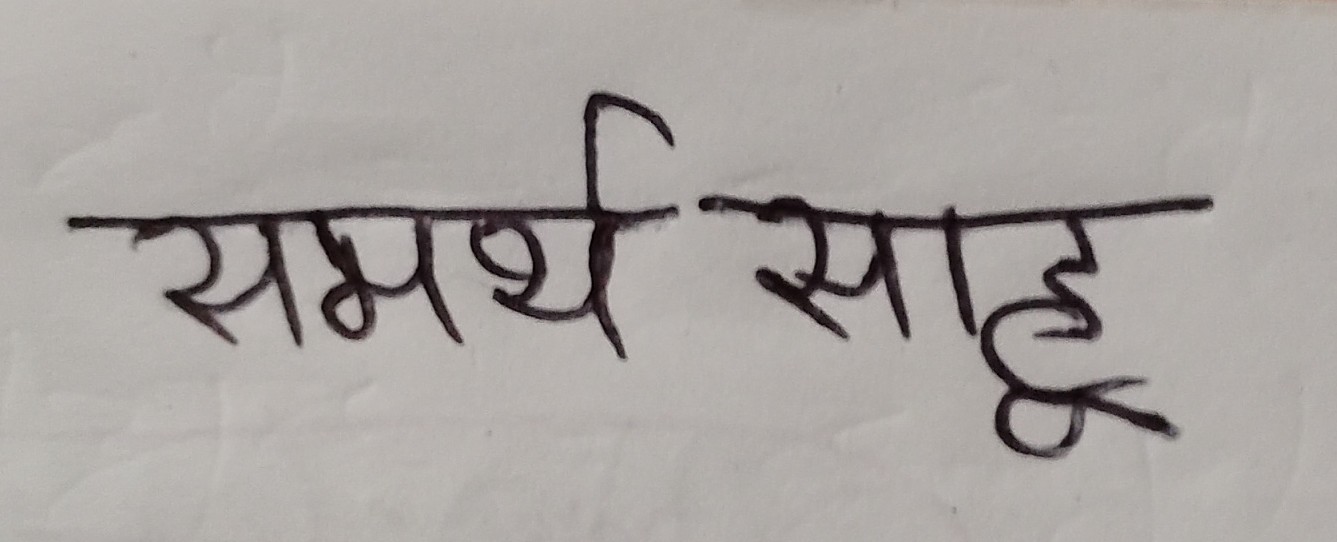 समर्थ साहू